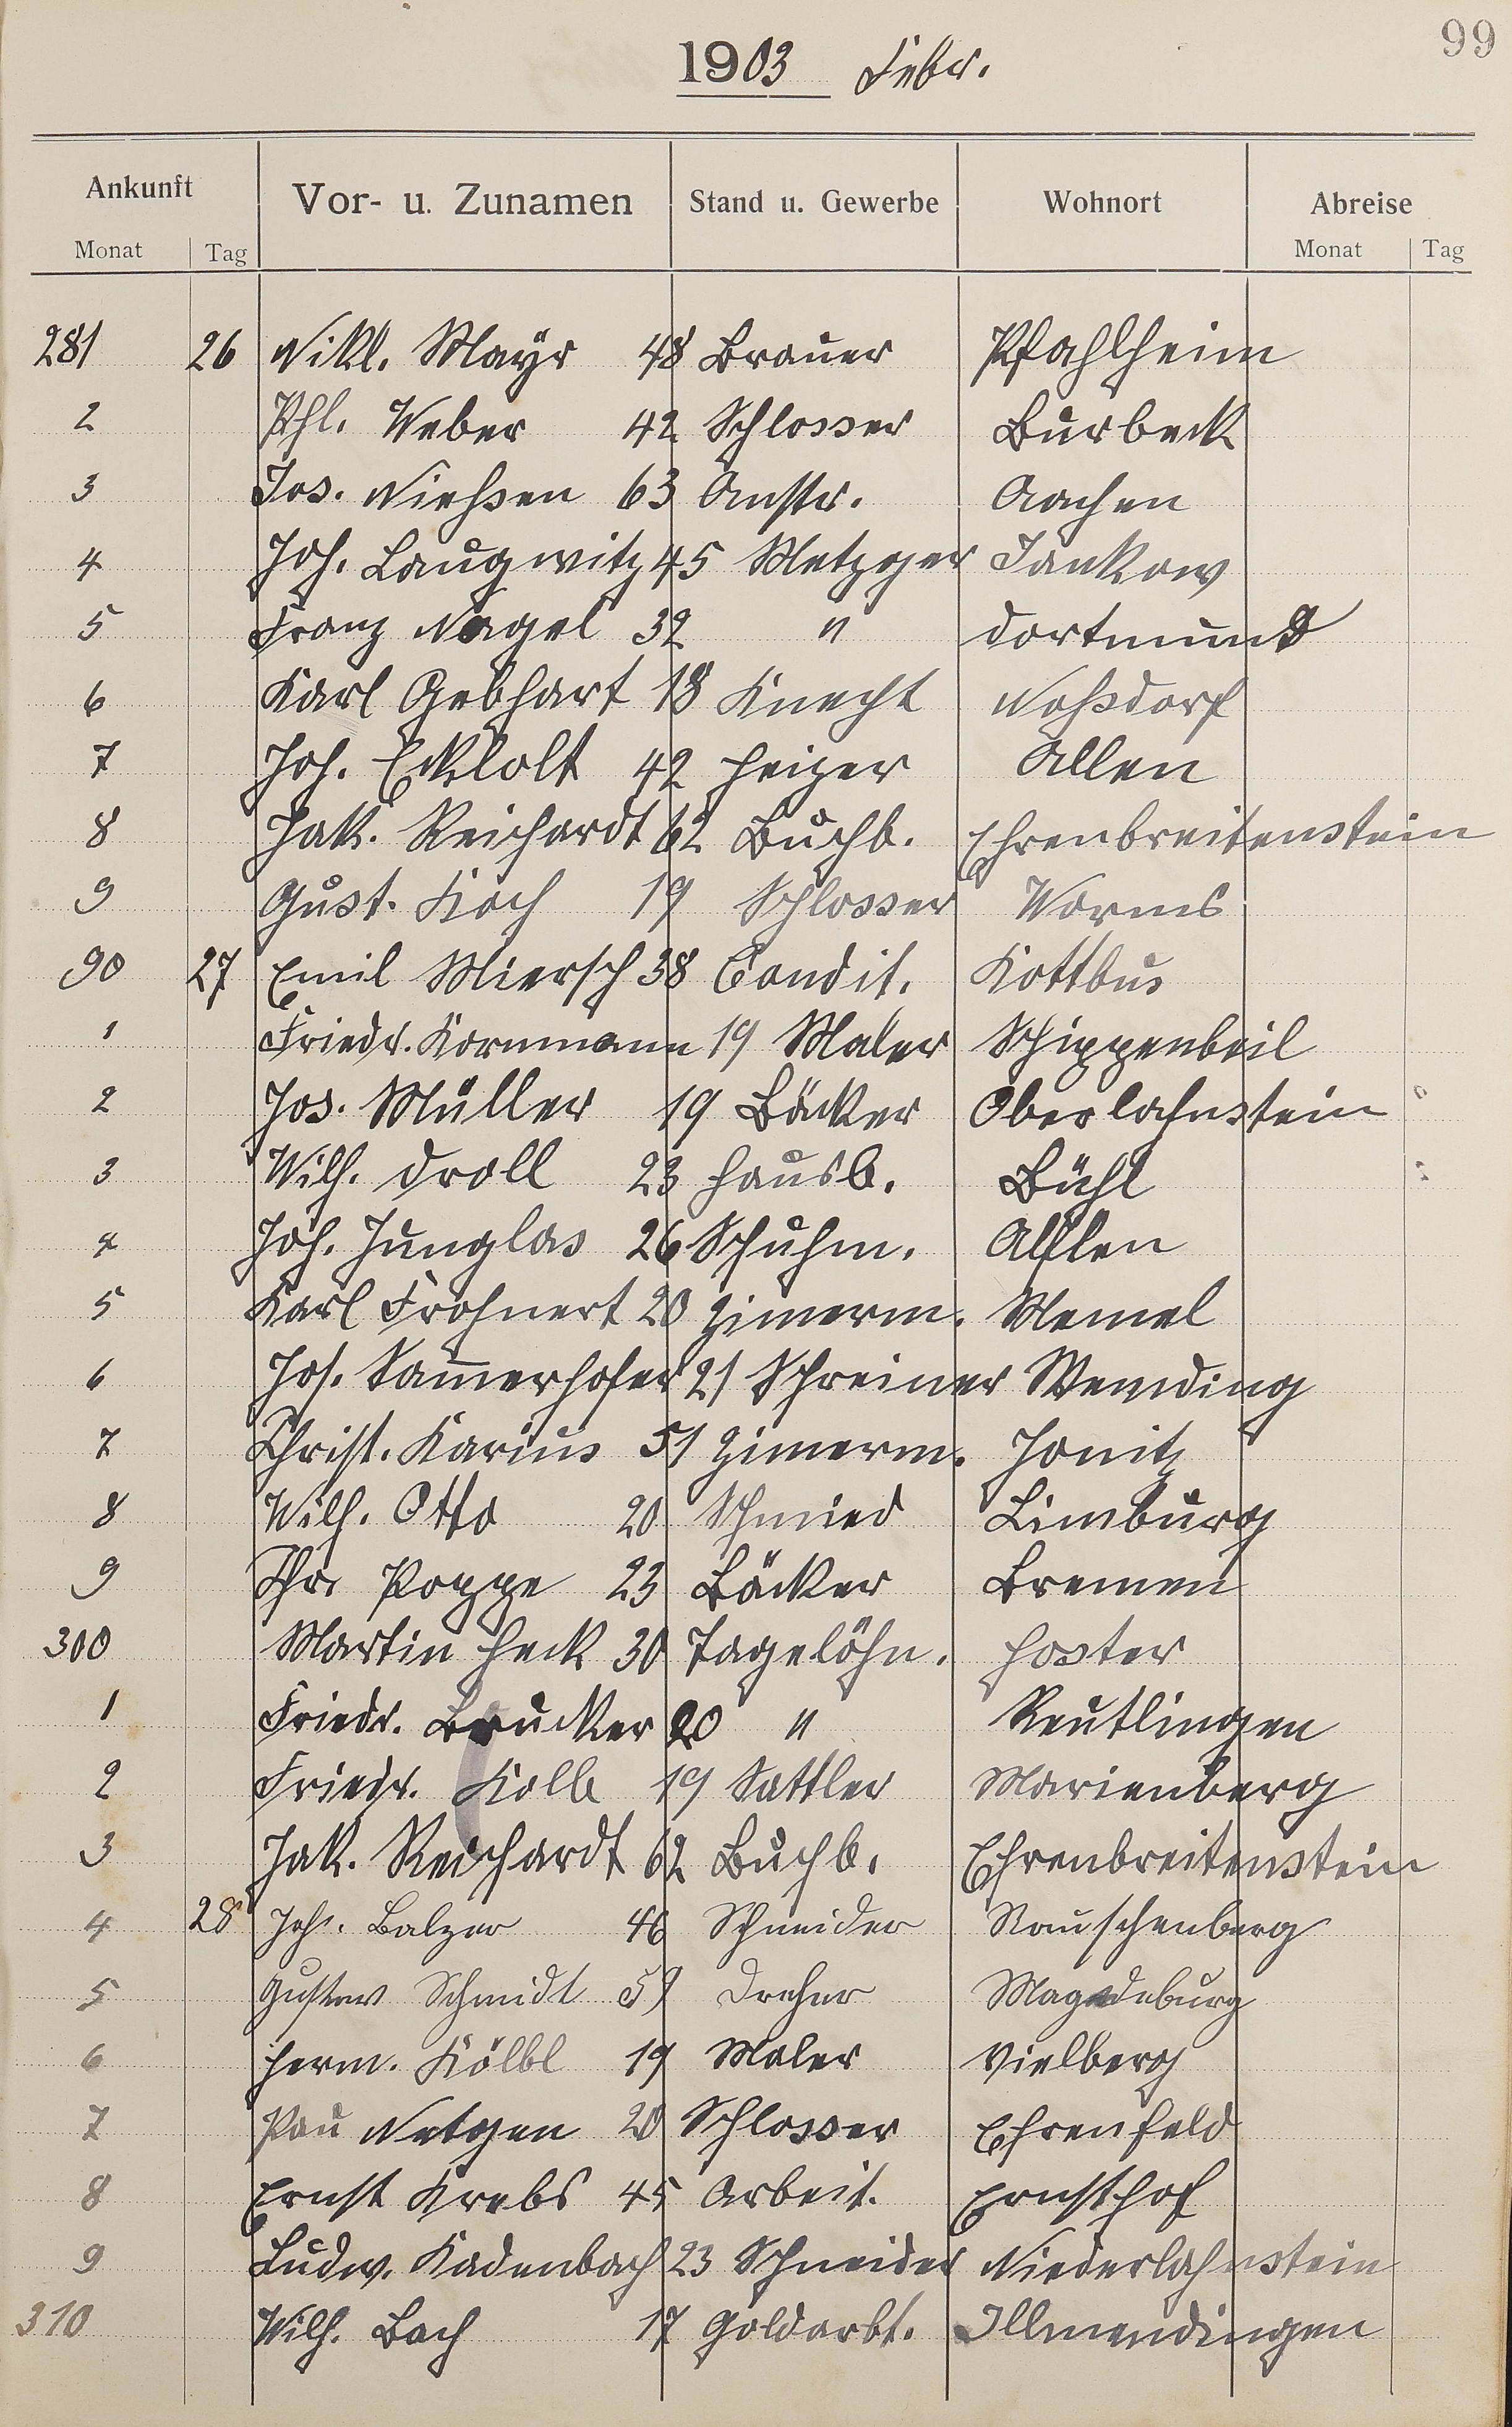 99
1903 Febr.
Ankunft Vor- u. Zunamen Stand u. Gewerbe Wohnort Abreise
Monat Tag Monat Tag
281 26 Nikl. Mayr 48 Brauer Pfahlheim
2 Phl. Weber 42 Schlosser Burbeck
3 Jos. Niehsen 63 Anstr. Aachen
4 Joh. Laugwitz 45 Metzger Jankow
5 Franz Nagel 32 " Dortmund
6 Karl Gebhart 18 Knecht Noßdorf
7 Joh. Ecklolt 42 Heizer Allen
8 Jak. Reichardt 62 Buchb. Ehrenbreitenstein
9 Gust. Koch 19 Schlosser Worms
90 27 Emil Miersch 38 Condit. Kottbus
1 Friedr. Kornmann 19 Maler Schippenbeil
2 Jos. Müller 19 Bäcker Oberlahnstein
3 Wilh. Droll 23 Hausb. Bühl
4 Joh. Junglas 26 Schuhm. Alflen
5 Karl Frohnert 20 Zimerm. Memel
6 Jos. Samerhofer 21 Schreiner Wemding
7 Christ. Karius 51 Zimerm. Jonitz
8 Wilh. Otto 20 Schmied Limburg
9 Chr. Poppe 23 Bäcker Bremen
300 Martin Heck 30 Tagelöhn. Hoster
1 Friedr. Brucker 20 " Reutlingen
2 Friedr. Kolb 19 Sattler Marienberg
3 Jak. Reichardt 62 Buchb. Ehrenbreitenstein
4 28 Joh. Balzer 46 Schneider Rauschenberg
5 Gustav Schmidt 59 Dreher Magdeburg
6 Herm. Kölbl 19 Maler Vielberg
7 Pau Netgen 20 Schlosser Ehrenfeld
8 Ernst Krebs 45 Arbeit. Ernsthof
9 Ludw. Kadenbach 23 Schneider Niederlahnstein
310 Wilh. Bach 17 Goldarbt. Illmendingen